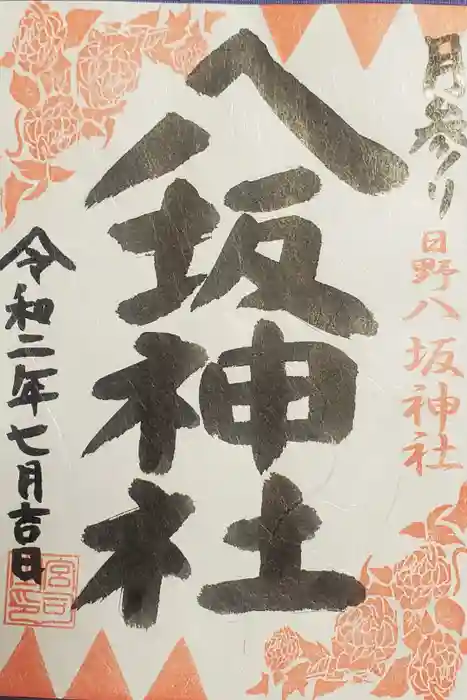 月参り
日野八坂神社
八坂神社
令和二年七月吉日
宮司之印